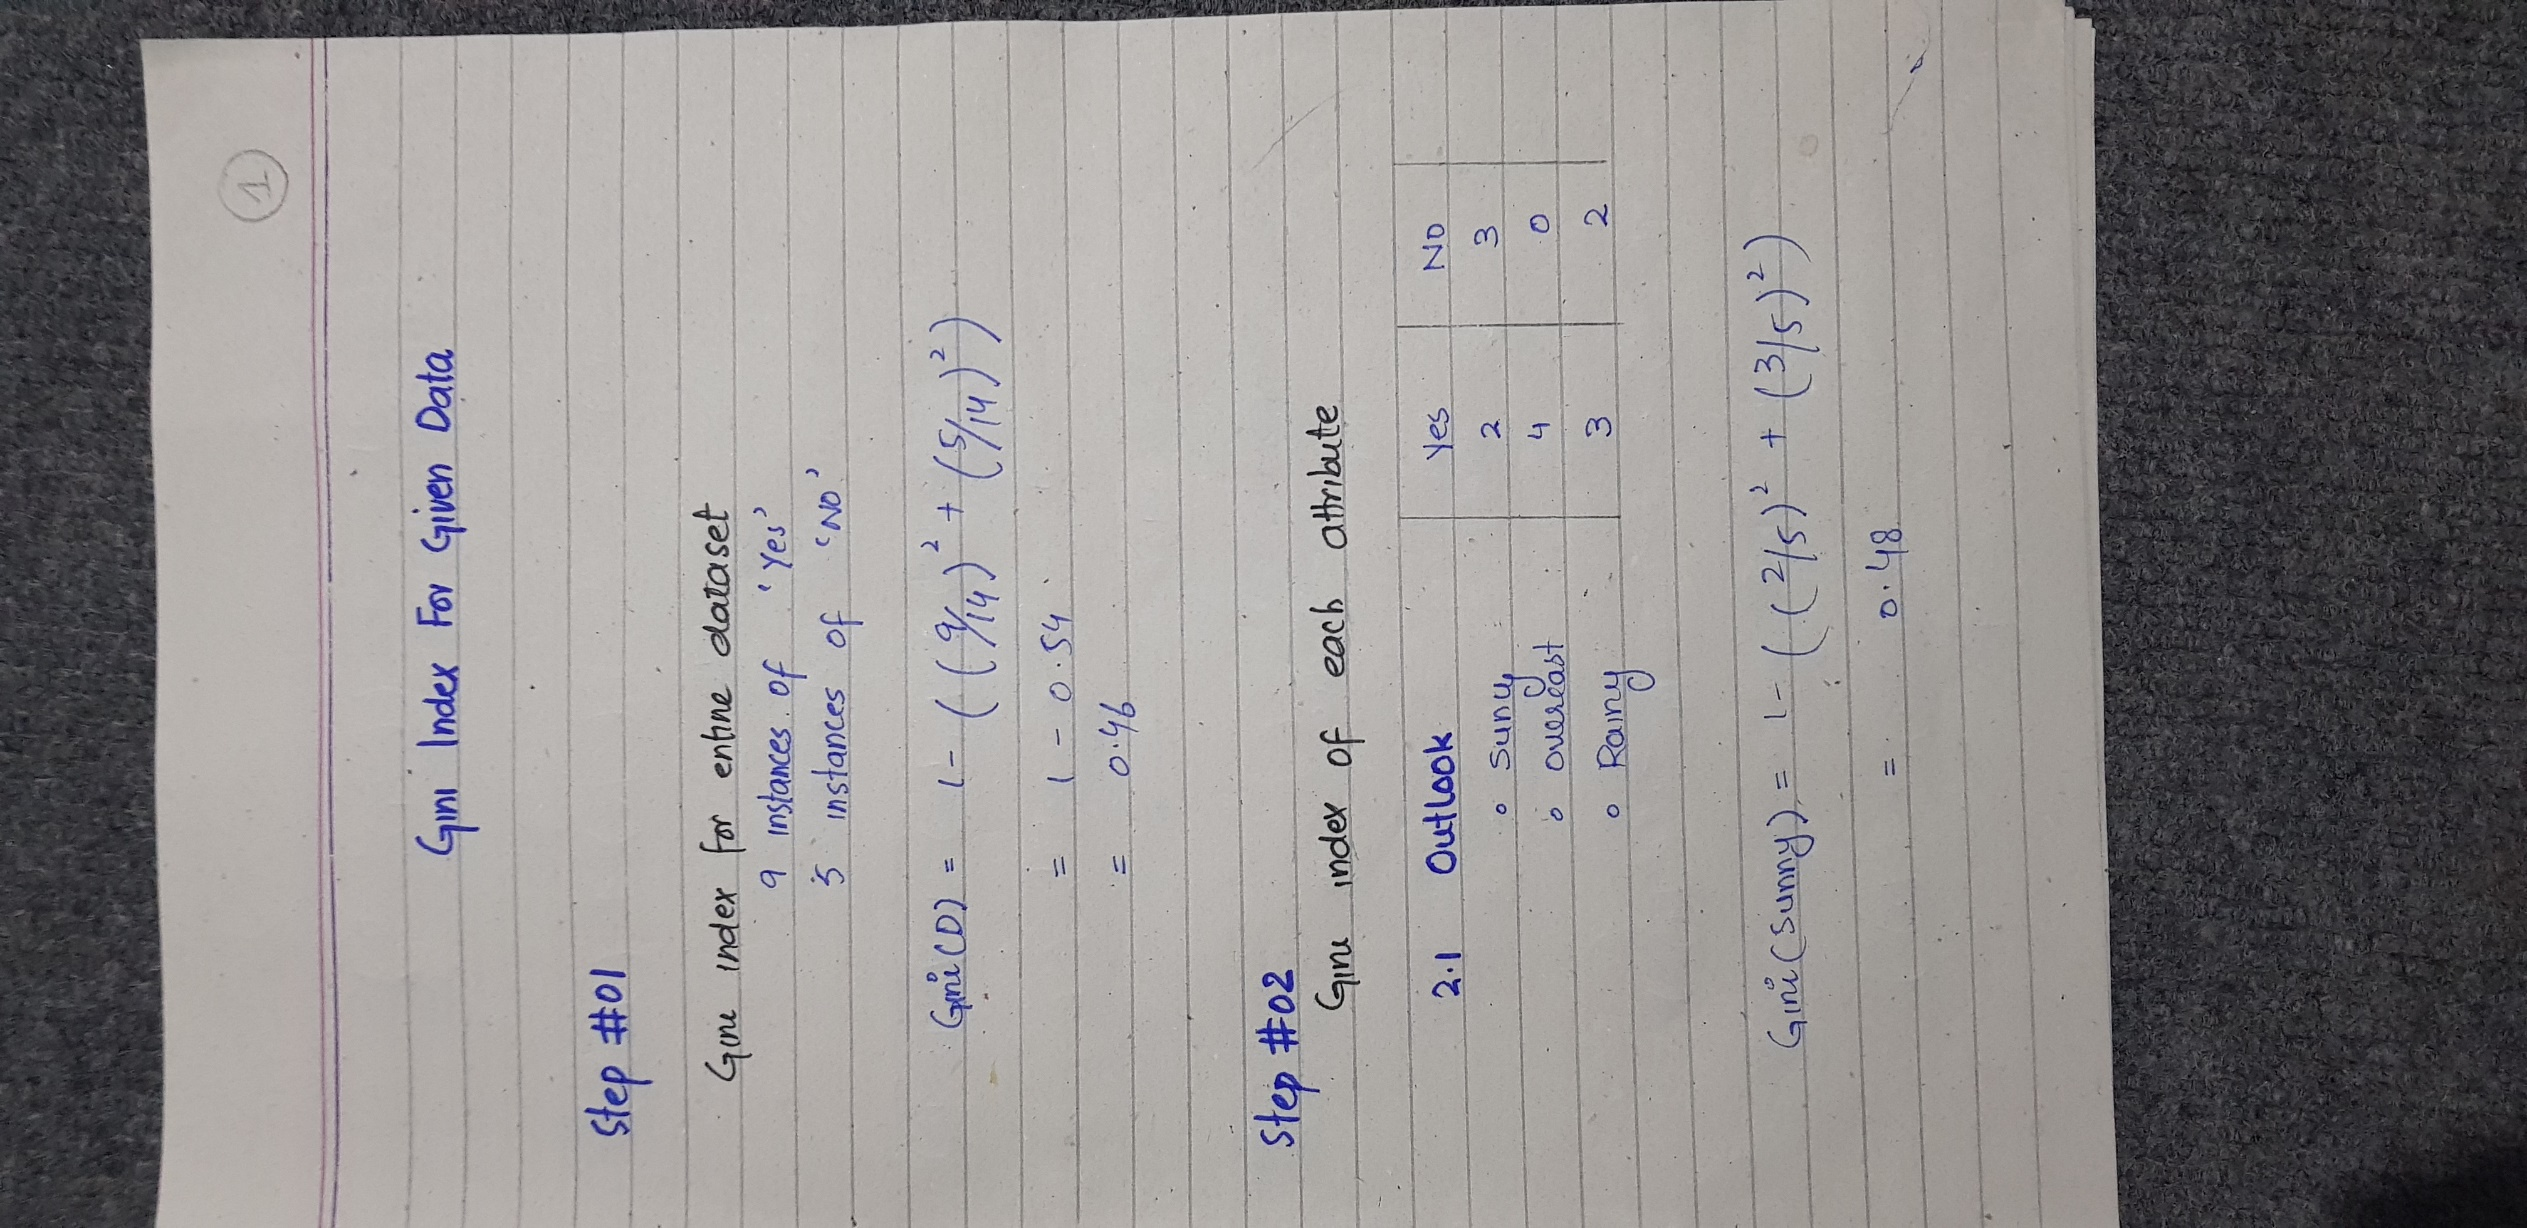 1
Gini Index For Given Data
Step #01
Gini index for entire dataset
9 instances of 'Yes'
5 instances of 'No'
Gini(D) = 1 - ((9/14)² + (5/14)²)
= 1 - 0.54
= 0.46
Step #02
Gini index of each attribute
2.1 Outlook Yes No
∘ Sunny 2 3
∘ overcast 4 0
∘ Rainy 3 2
Gini(Sunny) = 1 - ((2/5)² + (3/5)²)
= 0.48